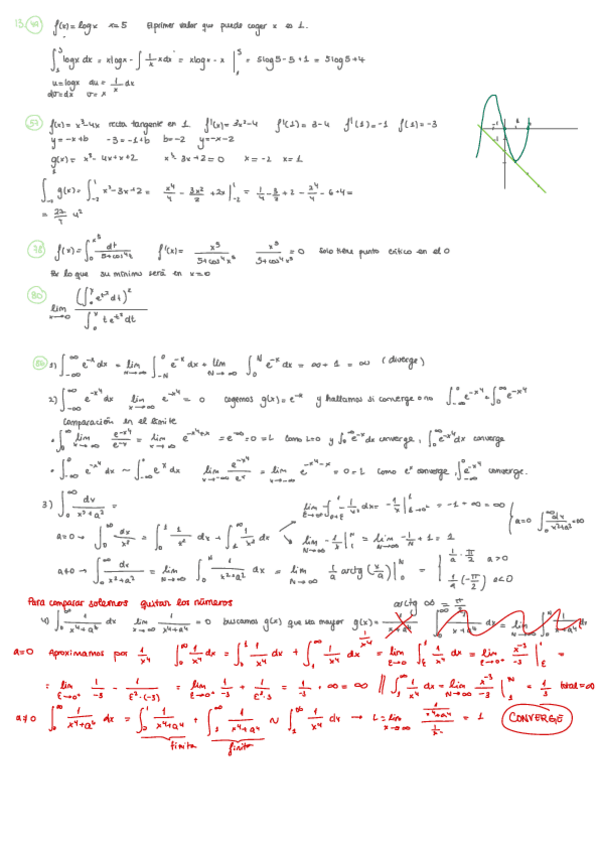 13. 49 f(x) = log x x=5 El primer valor que puede coger x es 1.
∫₁⁵ log x dx = x log x - ∫ 1/x x dx = x log x - x |₁⁵ = 5 log 5 - 5 + 1 = 5 log 5 + 4
u = log x du = 1/x dx
dv = dx v = x
57 f(x) = x³-4x recta tangente en 1 f'(x) = 3x²-4 f'(1) = 3-4 f'(1) = -1 f(1) = -3
y = -x+b -3 = -1+b b = -2 y = -x-2
g(x) = x³-4x+x+2 x³-3x+2 = 0 x = -2 x = 1
g(x) = ∫₋₂¹ x³-3x+2 = x⁴/4 - 3x²/2 + 2x |₋₂¹ = 1/4 - 3/2 + 2 - 2⁴/4 - 6 + 4 =
= 27/4 u²
78 f(x) = ∫₀ dt/(5+cos⁴t) f'(x) = = 0 Solo tiene punto crítico en el 0
Por lo que su mínimo será en x=0
80 lim x→0 (∫₀ˣ e^(t²) dt)² / ∫₀ˣ t e^(t²) dt
1) ∫₋∞^∞ e⁻ˣ dx = lim N→∞ ∫₋N⁰ e⁻ˣ dx + lim N→∞ ∫₀ᴺ e⁻ˣ dx = ∞ + 1 = ∞ (diverge)
2) ∫₋∞^∞ e^(-x⁴) dx lim x→∞ e^(-x⁴) = 0 cogemos g(x) = e⁻ˣ y hallamos si converge o no ∫₋∞⁰ e^(-x⁴) + ∫₀^∞ e^(-x⁴)
Comparación en el límite
• ∫₀^∞ lim x→∞ e^(-x⁴)/e⁻ˣ = lim x→∞ e^(-x⁴+x) = e^(-∞) = 0 = L Como L=0 y ∫₀^∞ e⁻ˣ dx converge, ∫₀^∞ e^(-x⁴) dx converge
• ∫₋∞⁰ e^(-x⁴) dx ~ ∫₋∞⁰ eˣ dx lim x→-∞ e^(-x⁴)/eˣ = lim x→-∞ e^(-x⁴-x) = 0 = L Como eˣ converge, ∫₋∞⁰ e^(-x⁴) converge.
3) ∫₀^∞ dx/(x²+a²) =
a=0 → ∫₀^∞ dx/x² = ∫₀¹ 1/x² dx + ∫₁^∞ 1/x² dx
= -1 + ∞ = ∞
lim N→∞ -1/x |₁ᴺ = lim N→∞ -1/N + 1 = 1
a=0 ∫₀^∞ dx/(x²+a²) = ∞
a≠0 → ∫₀^∞ dx/(x²+a²) = lim N→∞ ∫₀ᴺ 1/(x²+a²) dx = lim N→∞ 1/a arctg (x/a) |₀ᴺ = { 1/a · π/2 a>0
1/a (-π/2) a<0
Para comparar solemos quitar los números
arctg ∞ = π/2
4) ∫₀^∞ 1/(x⁴+a⁴) dx lim x→∞ 1/(x⁴+a⁴) = 0 buscamos g(x) que sea mayor g(x) =
a=0 Aproximamos por 1/x⁴ ∫₀^∞ 1/x⁴ dx = ∫₀¹ 1/x⁴ dx + ∫₁^∞ 1/x⁴ dx = lim ε→0 ∫ε¹ 1/x⁴ dx = lim ε→0⁺ x⁻³/-3 |ε¹ =
= lim ε→0⁺ 1/-3 - 1/(ε³·(-3)) = lim ε→0⁺ 1/-3 + 1/(ε³·3) = 1/3 + ∞ = ∞ // ∫₁^∞ 1/x⁴ dx = lim N→∞ x⁻³/-3 |₁ᴺ = 1/3 total = ∞
a≠0 ∫₀^∞ 1/(x⁴+a⁴) dx = ∫₀¹ 1/(x⁴+a⁴) + ∫₁^∞ 1/(x⁴+a⁴) ~ ∫₁^∞ 1/x⁴ dx → L = lim x→∞ (1/(x⁴+a⁴))/(1/x⁴) = 1 CONVERGE
finita finita